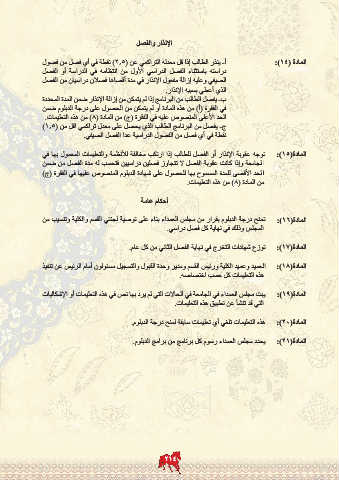 الإنذار والفصل
المادة (١٤): أ- ينذر الطالب إذا قل معدله التراكمي عن (٢,٥) نقطة في أي فصل من فصول
دراسته باستثناء الفصل الدراسي الأول من انتظامه في الدراسة أو الفصل
الصيفي وعليه إزالة مفعول الإنذار في مدة أقصاها فصلان دراسيان من الفصل
الذي أعطي بسببه الإنذار.
ب- يفصل الطالب من البرنامج إذا لم يتمكن من إزالة الإنذار ضمن المدة المحددة
في الفقرة (أ) من هذه المادة أو لم يتمكن من الحصول على درجة الدبلوم ضمن
الحد الأعلى المنصوص عليه في الفقرة (ج) من المادة (٨) من هذه التعليمات.
ج- يفصل من البرنامج الطالب الذي يحصل على معدل تراكمي أقل من (١,٥)
نقطة في أي فصل من الفصول الدراسية عدا الفصل الصيفي.
المادة(١٥): توجه عقوبة الإنذار أو الفصل للطالب إذا ارتكب مخالفة للأنظمة والتعليمات المعمول بها في
الجامعة وإذا كانت عقوبة الفصل لا تتجاوز فصلين دراسيين فتحسب له مدة الفصل من ضمن
الحد الأقصى للمدة المسموح بها للحصول على شهادة الدبلوم المنصوص عليها في الفقرة (ج)
من المادة (٨) من هذه التعليمات.
أحكام عامة
المادة(١٦): تمنح درجة الدبلوم بقرار من مجلس العمداء بناء على توصية لجنتي القسم والكلية وتنسيب من
المجلس وذلك في نهاية كل فصل دراسي.
المادة(١٧): توزع شهادات التخرج في نهاية الفصل الثاني من كل عام.
المادة(١٨): العميد وعميد الكلية ورئيس القسم ومدير وحدة القبول والتسجيل مسئولون أمام الرئيس عن تنفيذ
هذه التعليمات كل حسب اختصاصه.
المادة(١٩): يبت مجلس العمداء في الجامعة في الحالات التي لم يرد بها نص في هذه التعليمات أو الإشكاليات
التي قد تنشأ عن تطبيق هذه التعليمات.
المادة(٢٠): هذه التعليمات تلغي أي تعليمات سابقة لمنح درجة الدبلوم.
المادة(٢١): يحدد مجلس العمداء رسوم كل برنامج من برامج الدبلوم.